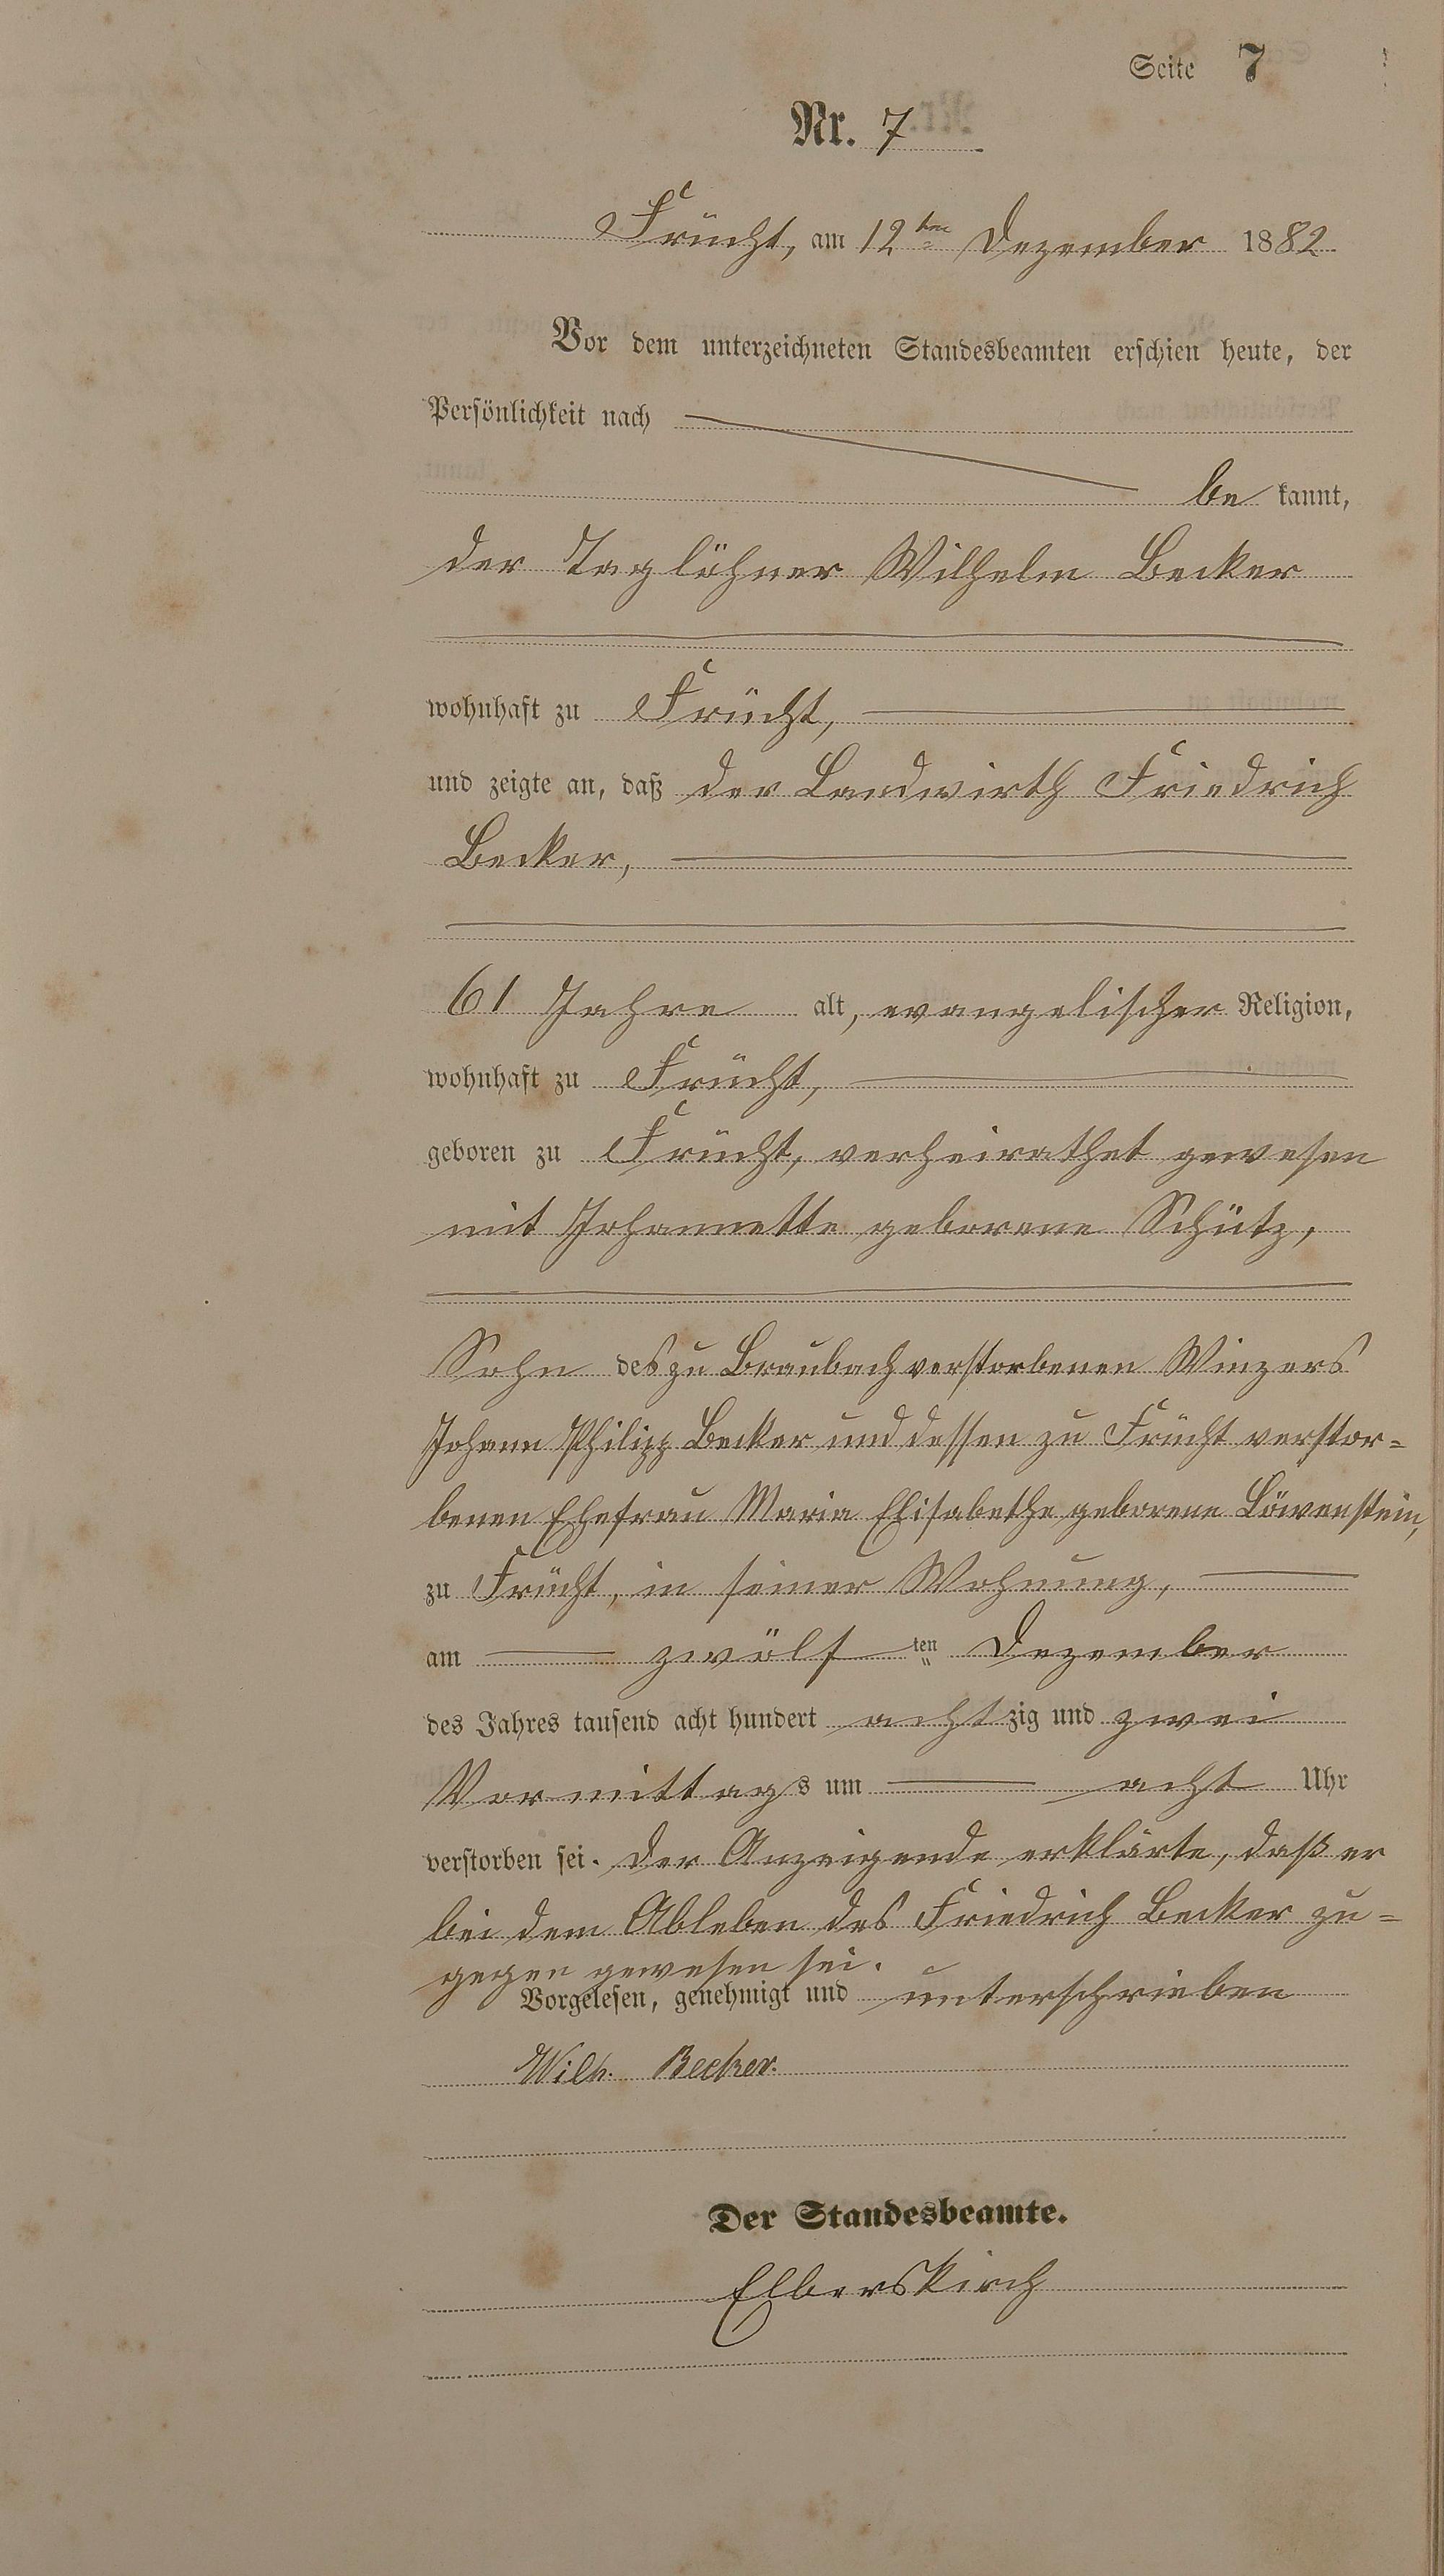 Seite 7
Nr. 7
Frücht, am 12ten Dezember 1882
Vor dem unterzeichneten Standesbeamten erschien heute, der
Persönlichkeit nach
be kannt,
der Taglöhner Wilhelm Becker
wohnhaft zu Frücht,
und zeigte an, daß der Landwirth Friedrich
Becker,
61 Jahre alt, evangelischer Religion,
wohnhaft zu Frücht,
geboren zu Frücht, verheirathet gewesen
mit Johannette geborene Schütz,
Sohn des zu Braubach verstorbenen Winzers
Johann Philipp Becker und dessen zu Frücht verstor=
benen Ehefrau Maria Elisabethe geborene Löwenstein,
zu Frücht, in seiner Wohnung,
am zwölf ten Dezember
des Jahres tausend acht hundert acht zig und zwei
Vormittags um acht Uhr
verstorben sei. Der Anzeigende erklärte, daß er
bei dem Ableben des Friedrich Becker zu=
gegen gewesen sei.
Vorgelesen, genehmigt und unterschrieben
Wilh. Becker.
Der Standesbeamte.
Elberskirch